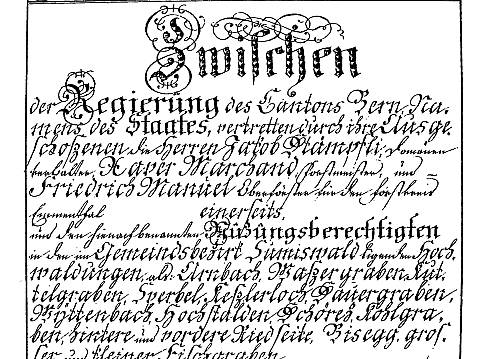 Zwischen
der Regierung des Cantons Bern, Na-
mens des Staates, vertretten durch ihre Ausge-
schoßenen die Herren Jakob Stämpfli, Domänen
verwalter, Xaver Marchand Forstmeister, und
Friedrich Manuel Oberförster für den Forstkreis
Emmenthal einerseits,
und den hienach benannten Nuzungsberechtigten
in den im Gemeindsbezirk Sumiswald ligenden Hoch-
waldungen, als: Urnbach, Waßergraben, Rüt-
telgraben, Sperbel, Keßlerloch, Pauergraben,
Wyttenbach, Hochstalden, Schöres, Kohlgra-
ben, hintere und vordere Riedseite, Bisegg, gros-
ser und kleiner Fischgraben